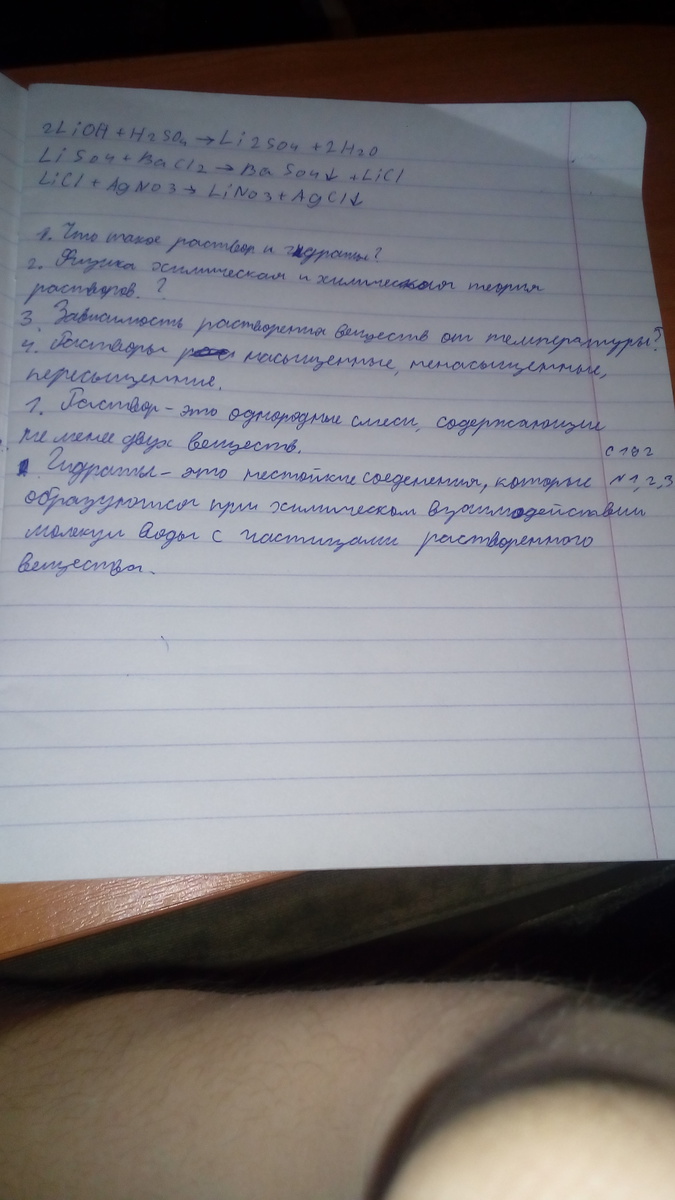 2LiOH + H2SO4 → Li2SO4 + 2H2O
LiSO4 + BaCl2 → BaSO4↓ + LiCl
LiCl + AgNO3 → LiNO3 + AgCl↓
1. Что такое раствор и гидраты?
2. Физика химическая и химическая теория
растворов. ?
3. Зависимость растворения веществ от температуры?
4. Растворы насыщенные, ненасыщенные,
пересыщенные.
1. Раствор - это однородные смеси, содержающие
не менее двух веществ.
с 192
Гидраты - это нестойкие соеденения, которые
№ 1, 2, 3
образуются при химическом взаимодействии
молекул воды с частицами растворенного
вещества.